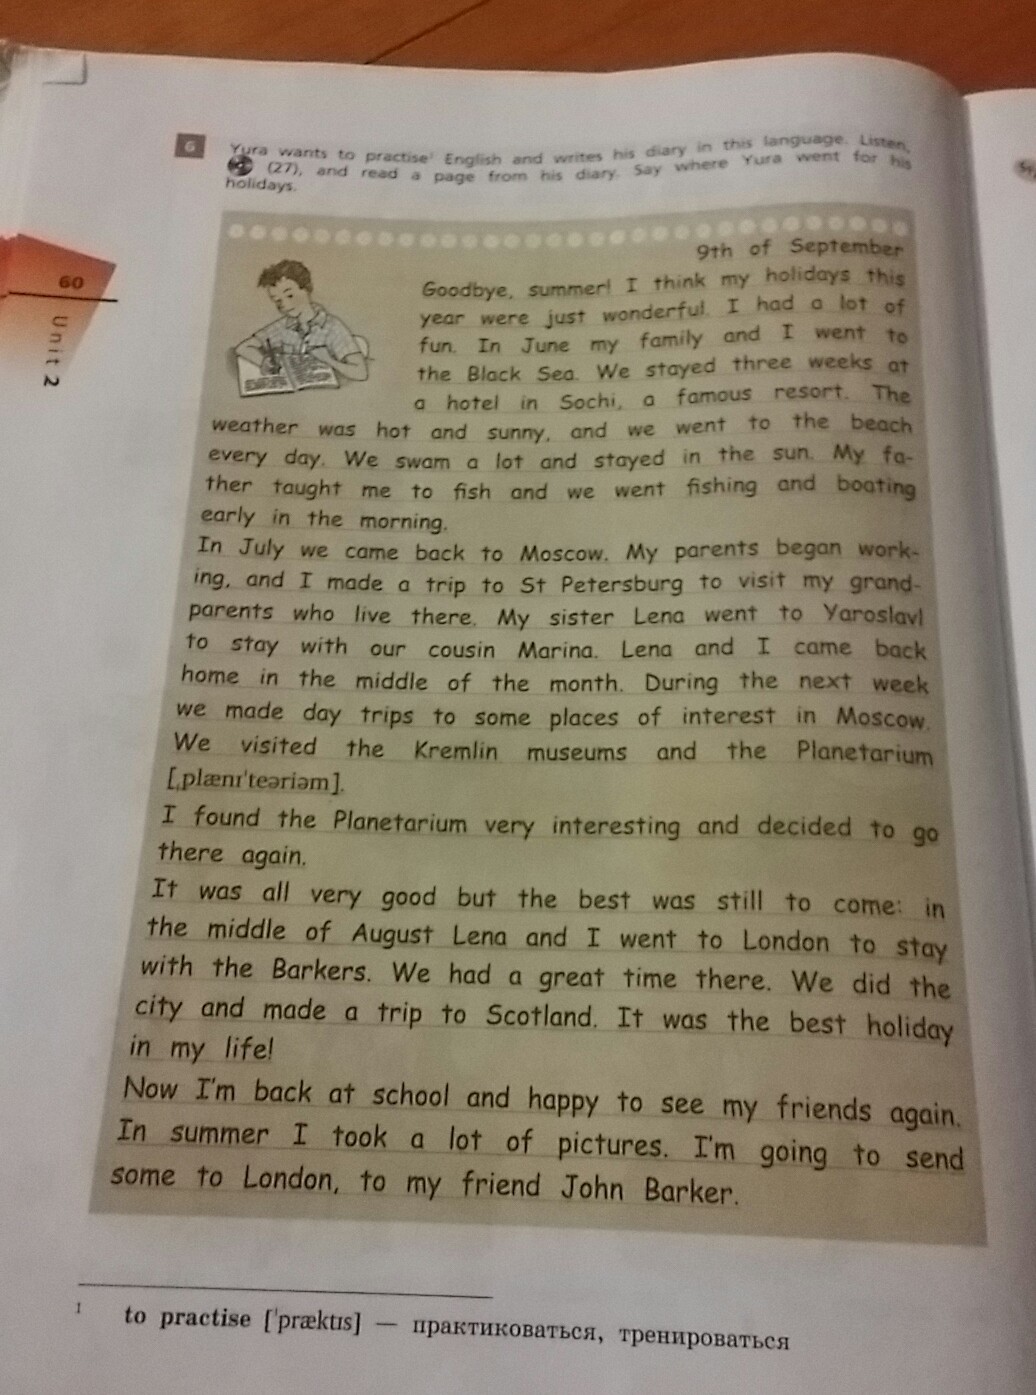 6
Yura wants to practise¹ English and writes his diary in this language. Listen,
(27), and read a page from his diary. Say where Yura went for his
holidays.
60
Unit 2
9th of September
Goodbye, summer! I think my holidays this
year were just wonderful. I had a lot of
fun. In June my family and I went to
the Black Sea. We stayed three weeks at
a hotel in Sochi, a famous resort. The
weather was hot and sunny, and we went to the beach
every day. We swam a lot and stayed in the sun. My fa-
ther taught me to fish and we went fishing and boating
early in the morning.
In July we came back to Moscow. My parents began work-
ing, and I made a trip to St Petersburg to visit my grand-
parents who live there. My sister Lena went to Yaroslavl
to stay with our cousin Marina. Lena and I came back
home in the middle of the month. During the next week
we made day trips to some places of interest in Moscow.
We visited the Kremlin museums and the Planetarium
[ˌplænɪˈteəriəm].
I found the Planetarium very interesting and decided to go
there again.
It was all very good but the best was still to come: in
the middle of August Lena and I went to London to stay
with the Barkers. We had a great time there. We did the
city and made a trip to Scotland. It was the best holiday
in my life!
Now I'm back at school and happy to see my friends again.
In summer I took a lot of pictures. I'm going to send
some to London, to my friend John Barker.
1 to practise [ˈpræktɪs] — практиковаться, тренироваться